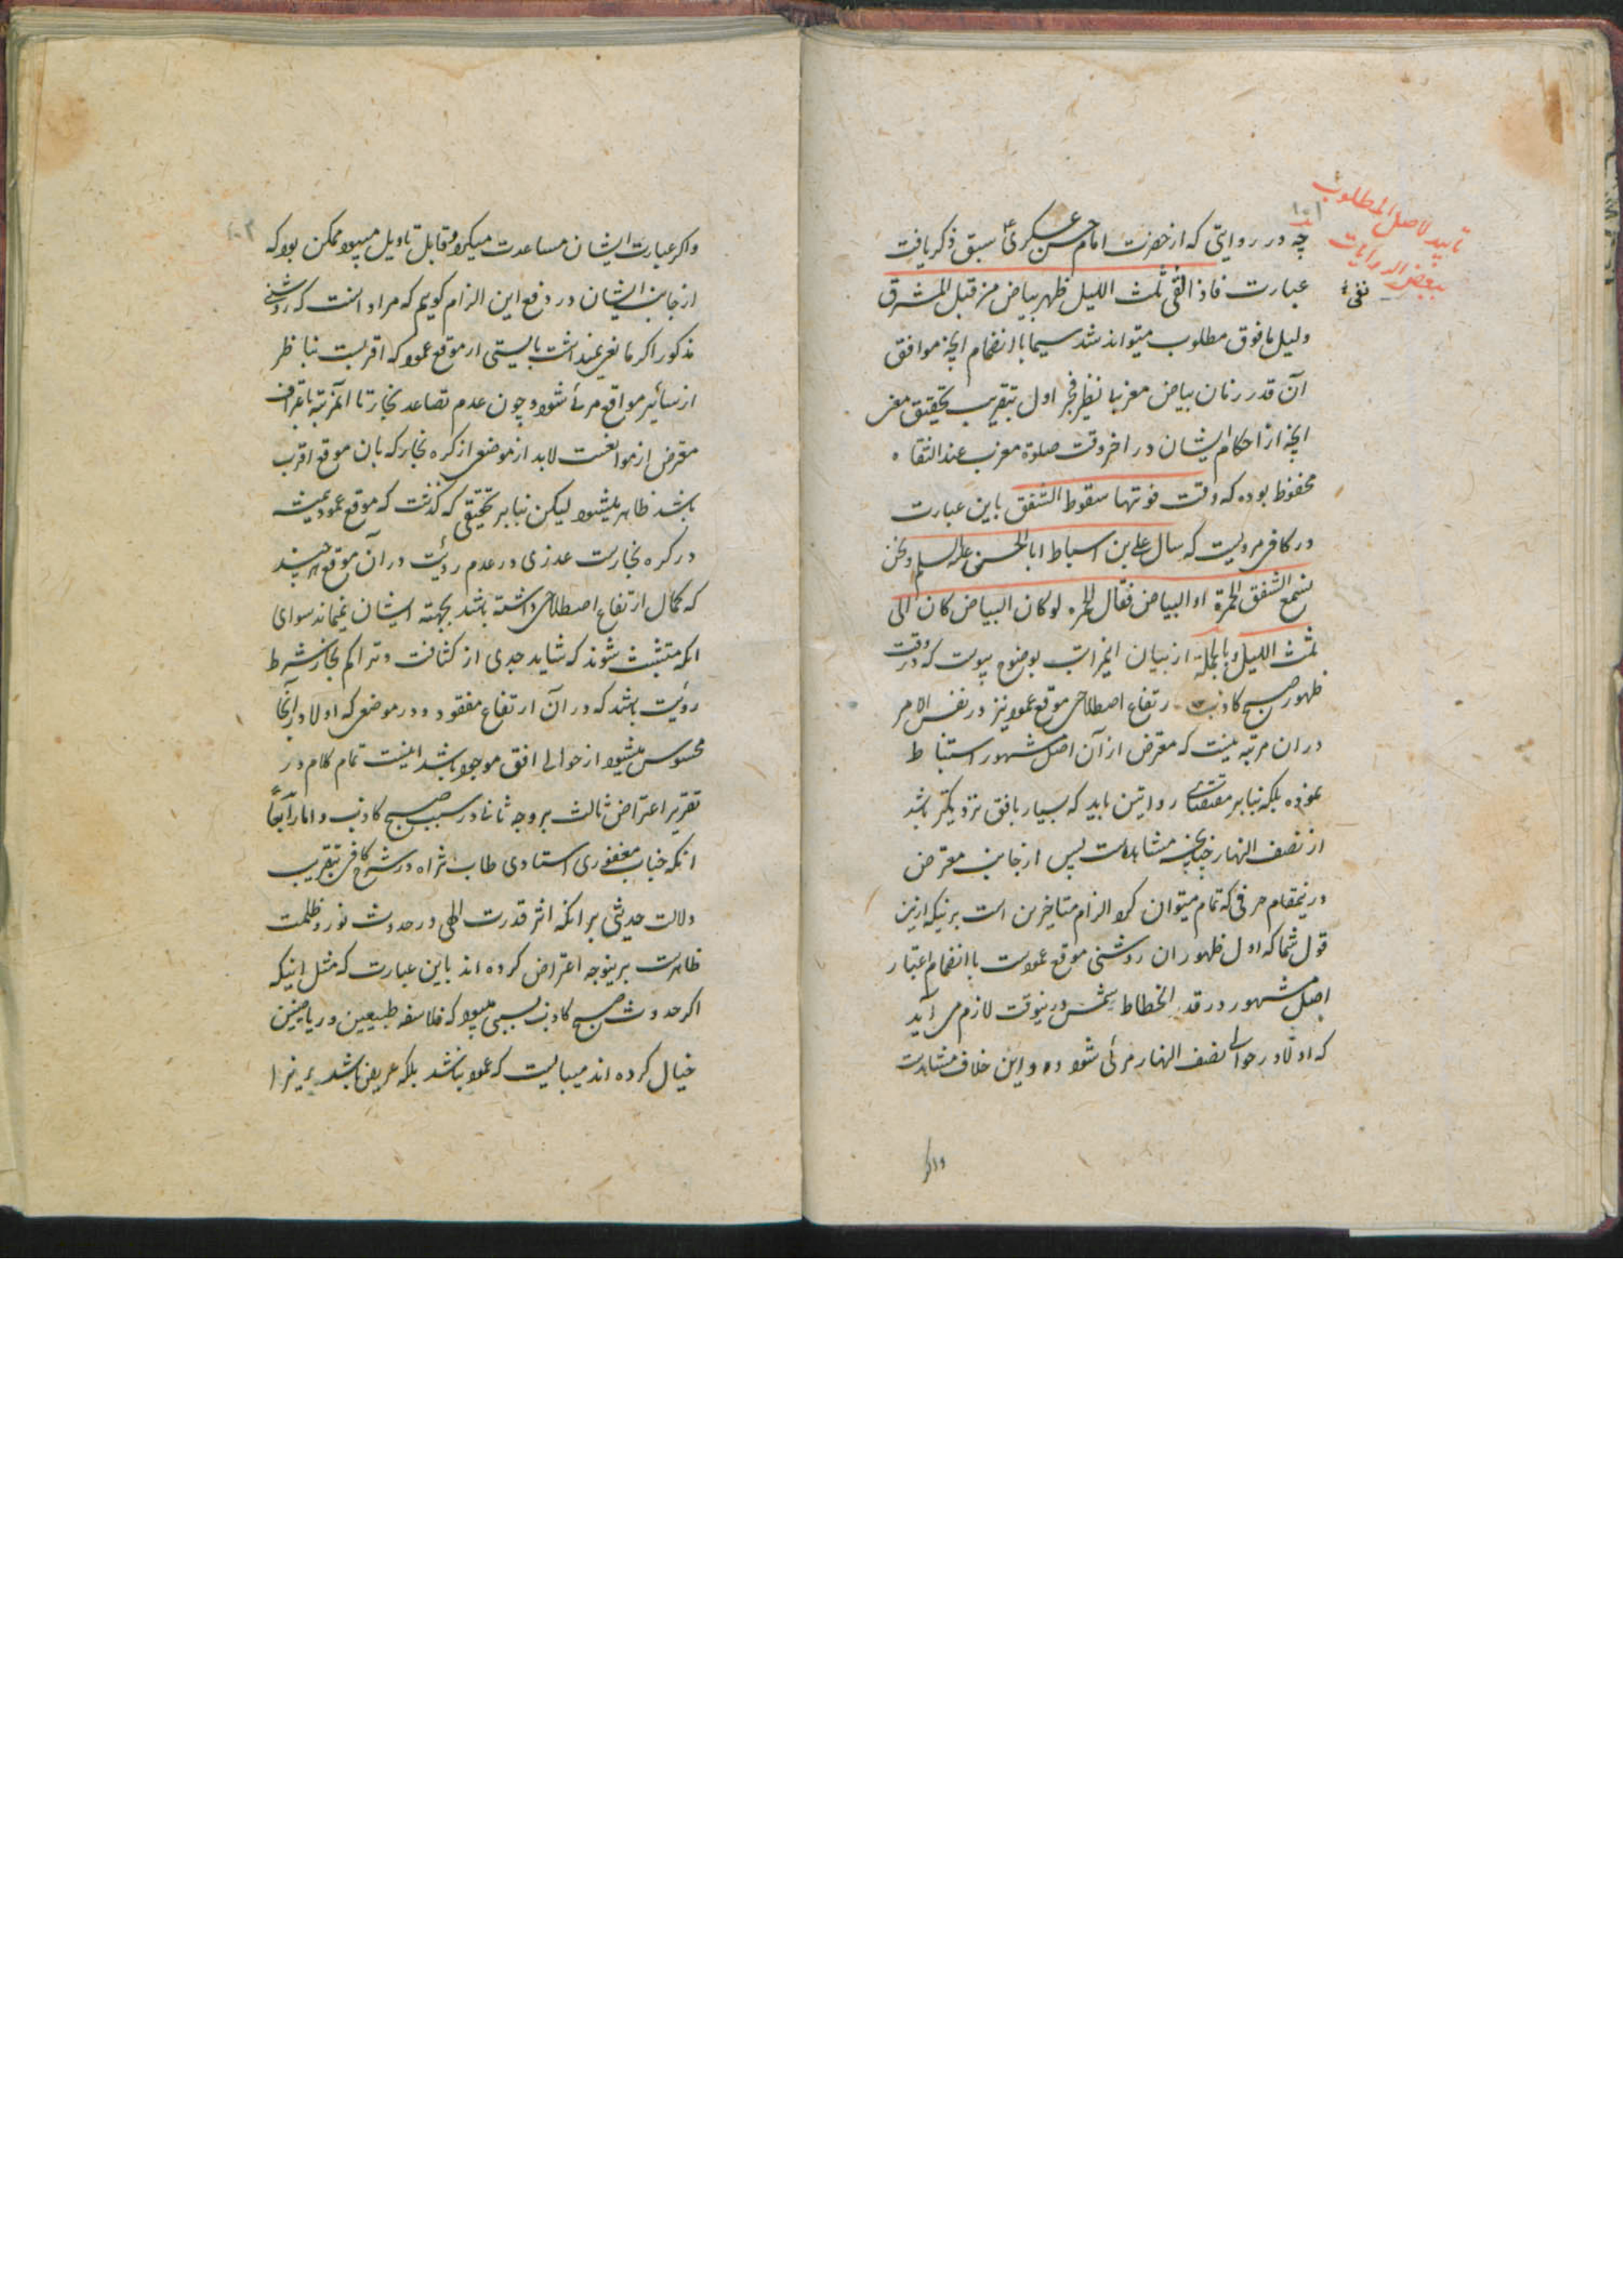 تایید لاصل المطلوب
ببعض الروایات
چه در روایتی که از حضرت امام حسن عسکری ع سبق ذکر یافت
عبارت فاذا بقی ثلث اللیل ظهر بیاض من قبل المشرق
دلیل مافوق مطلوب میتواند شد سیما با انضمام آنچه موافق
آن قدر زمان بیاض مغربا نظیر فجر اول بتقریب تحقیق
آنچه از احکام ایشان در اخر وقت صلوة مغرب عند الثقاه
محفوظ بوده که وقت فوتها سقوط الشفق باین عبارت
در کافی مرویست که سال علی بن اسباط ابا الحسن علیه السلم ونحن
نسمع الشفق الحمرة او البیاض فقال الحمره لو کان البیاض کان الی
ثلث اللیل و بالجمله از بیان اینمراتب بوضوح پیوست که در وقت
ظهور صبح کاذب ارتفاع اصطلاحی موقع عمود نیز در نفس الامر
در ان مرتبه نیست که معترض از آن اصل مشهور استنباط
نموده بلکه بنابر مقتضای روایتین باید که بسیار بافق نزدیکتر باشد
از نصف النهار چنانچه مشاهدست پس از جانب معترض
درینمقام حرفی که تمام میتوان کرد الزام متاخرین است برینکه ازین
قول شما که اول ظهور ان روشنی موقع عمودست با انضمام اعتبار
اصل مشهور در قدر انحطاط شمس درینوقت لازم می آید
که اولا در حوالی نصف النهار مرئی شود و این خلاف مشاهدست
واگر
واگر عبارت ایشان مساعدت میکرد و قابل تاویل میبود ممکن بود که
از جانب ایشان در دفع این الزام گویم که مراد انست که روشنی
مذکور اگر مانعی نمیداشت بایستی از موقع عمود که اقربست بناظر
از سایر مواقع مرئی شود و چون عدم تصاعد بخار تا آنمرتبه باعتراف
معترض از موانعست لابد از موضعی از کره بخار که بان موقع اقرب
باشد ظاهر میشود لیکن بنابر تحقیقی که گذشت که موقع عمود همیشه
در کره بخارست عذری در عدم رؤیت در آن موقع هر چند
که کمال ارتفاع اصطلاحی داشته باشد بجهته ایشان نمیماند سوای
انکه متشبث شوند که شاید حدی از کثافت و تراکم بخار شرط
رؤیت باشد که در آن ارتفاع مفقود و در موضعی که اولا در آنجا
محسوس میشود از حوالی افق موجود باشد اینست تمام کلام در
تقریر اعتراض ثالث بر وجه ثانی در سبب صبح کاذب و اما رابعا
انکه جناب مغفوری استادی طاب ثراه در شرح کافی بتقریب
دلالت حدیثی بر انکه اثر قدرت الهی در حدوث نور و ظلمت
ظاهرست برینوجه اعتراض کرده اند باین عبارت که مثل اینکه
اگر حدوث صبح کاذب بسببی میبود که فلاسفه طبیعین و ریاضیین
خیال کرده اند میبایست که عمود نباشد بلکه عریض باشد